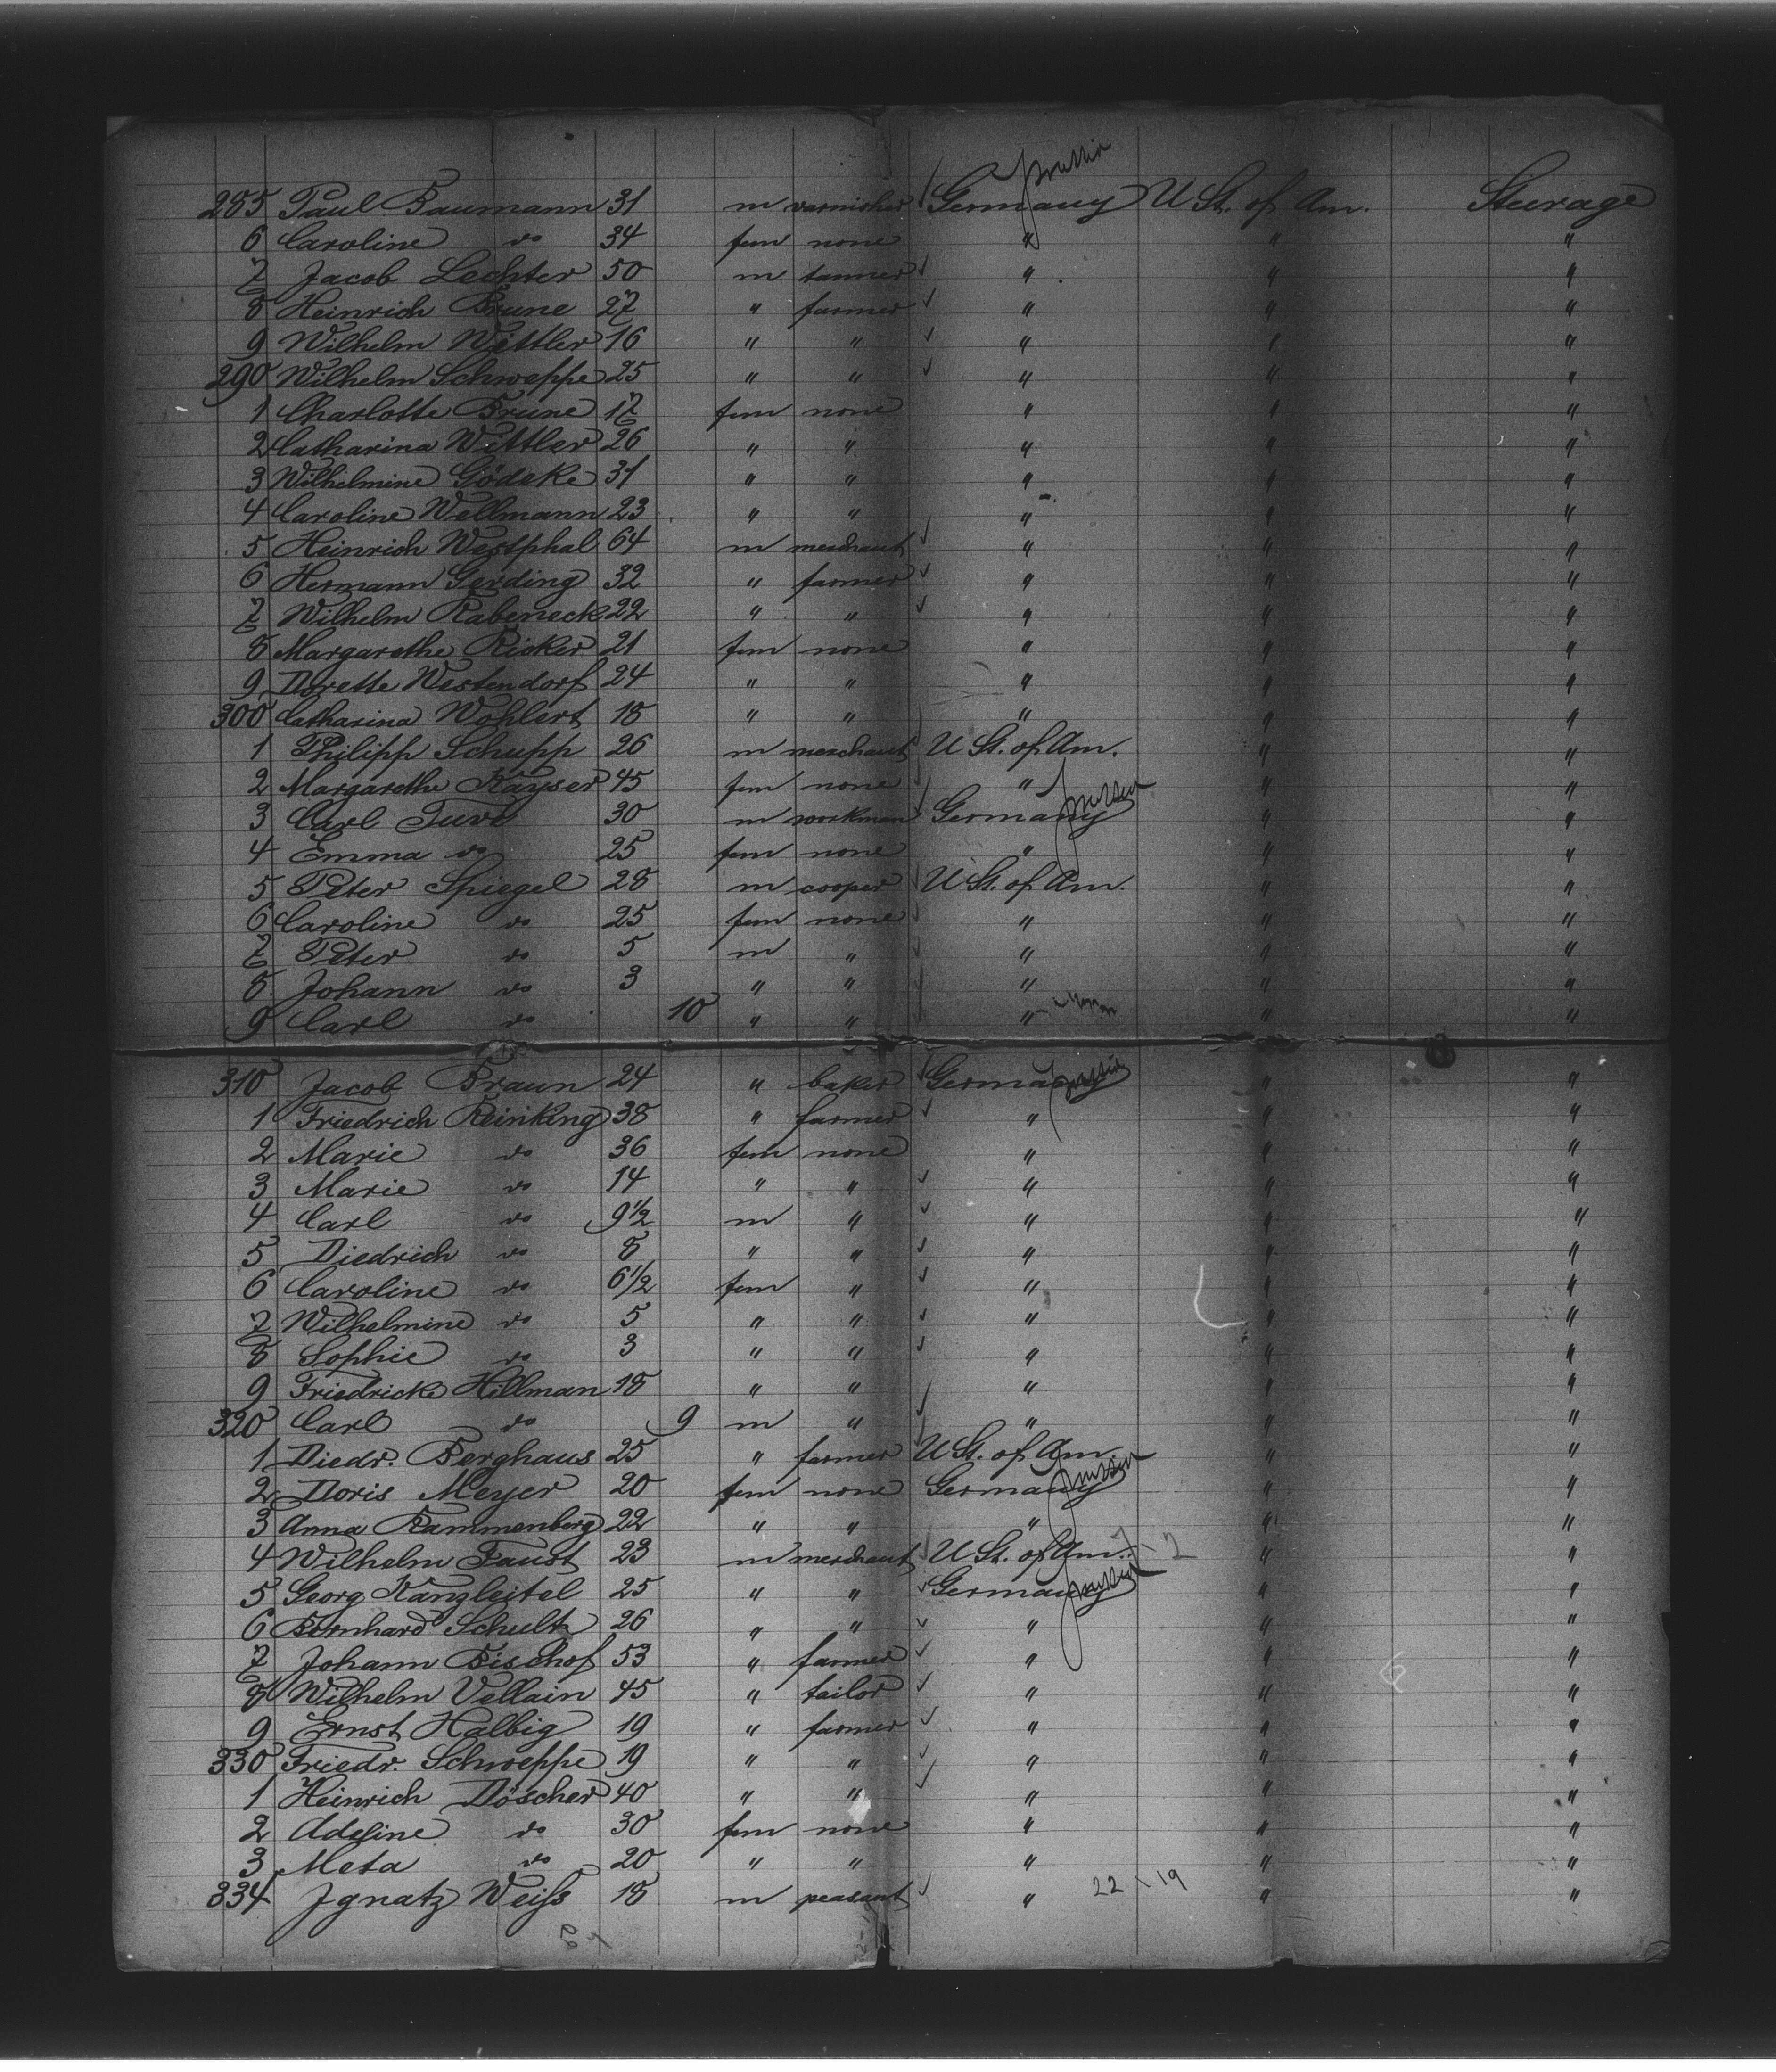 prussia
285 Paul Baumann 31 m varnisher Germany U St. of Am. Steerage
6 Caroline do 34 fem none " " "
7 Jacob Lechter 50 m tanner " " "
8 Heinrich Brune 27 " farmer " " "
9 Wilhelm Wittler 16 " " " " "
290 Wilhelm Schweppe 25 " " " " "
1 Charlotte Brune 17 fem none " " "
2 Catharina Wittler 26 " " " " "
3 Wilhelmine Gödeke 31 " " " " "
4 Caroline Wellmann 23 " " " " "
5 Heinrich Westphal 64 m merchant " " "
6 Hermann Gerding 32 " farmer " " "
7 Wilhelm Rabeneck 22 " " " " "
8 Margarethe Ricker 21 fem none " " "
9 Dorette Westendorf 24 " " " " "
300 Catharina Wohlert 18 " " " " "
1 Philipp Schupp 26 m merchant U St. of Am. " "
2 Margarethe Kayser 45 fem none " " "
3 Carl 30 m workman Germany prussia " "
4 Emma do 25 fem none " " "
5 Peter Spiegel 28 m cooper U St. of Am. " "
6 Caroline do 25 fem none " " "
7 Peter do 5 m " " " "
8 Johann do 3 " " " " "
9 Carl do 10 " " " " "
310 Jacob Braun 24 " baker Germany prussia " "
1 Friedrich Reinking 38 " farmer " " "
2 Marie do 36 fem none " " "
3 Marie do 14 " " " " "
4 Carl do 9½ m " " " "
5 Diedrich do 8 " " " " "
6 Caroline do 6½ fem " " " "
7 Wilhelmine do 5 " " " " "
8 Sophie do 3 " " " " "
9 Friedricke Hillman 18 " " " " "
320 Carl do 9 m " " " "
1 Diedr. Berghaus 25 " farmer U St. of Am. " "
2 Doris Meyer 20 fem none Germany prussia " "
3 Anna Rammenberg 22 " " " " "
4 Wilhelm Faust 23 m merchant U St. of Am. " "
5 Georg Kanzleitel 25 " " Germany prussia " "
6 Bernhard Schultz 26 " " " " "
7 Johann Bischof 53 " farmer " " "
8 Wilhelm Vellain 45 " tailor " " "
9 Ernst Halbig 19 " farmer " " "
330 Friedr. Schweppe 19 " " " " "
1 Heinrich Döscher 40 " " " " "
2 Adeline do 30 fem none " " "
3 Meta do 20 " " " " "
334 Ignatz Weiss 18 m peasant " 22 \ 19 " "